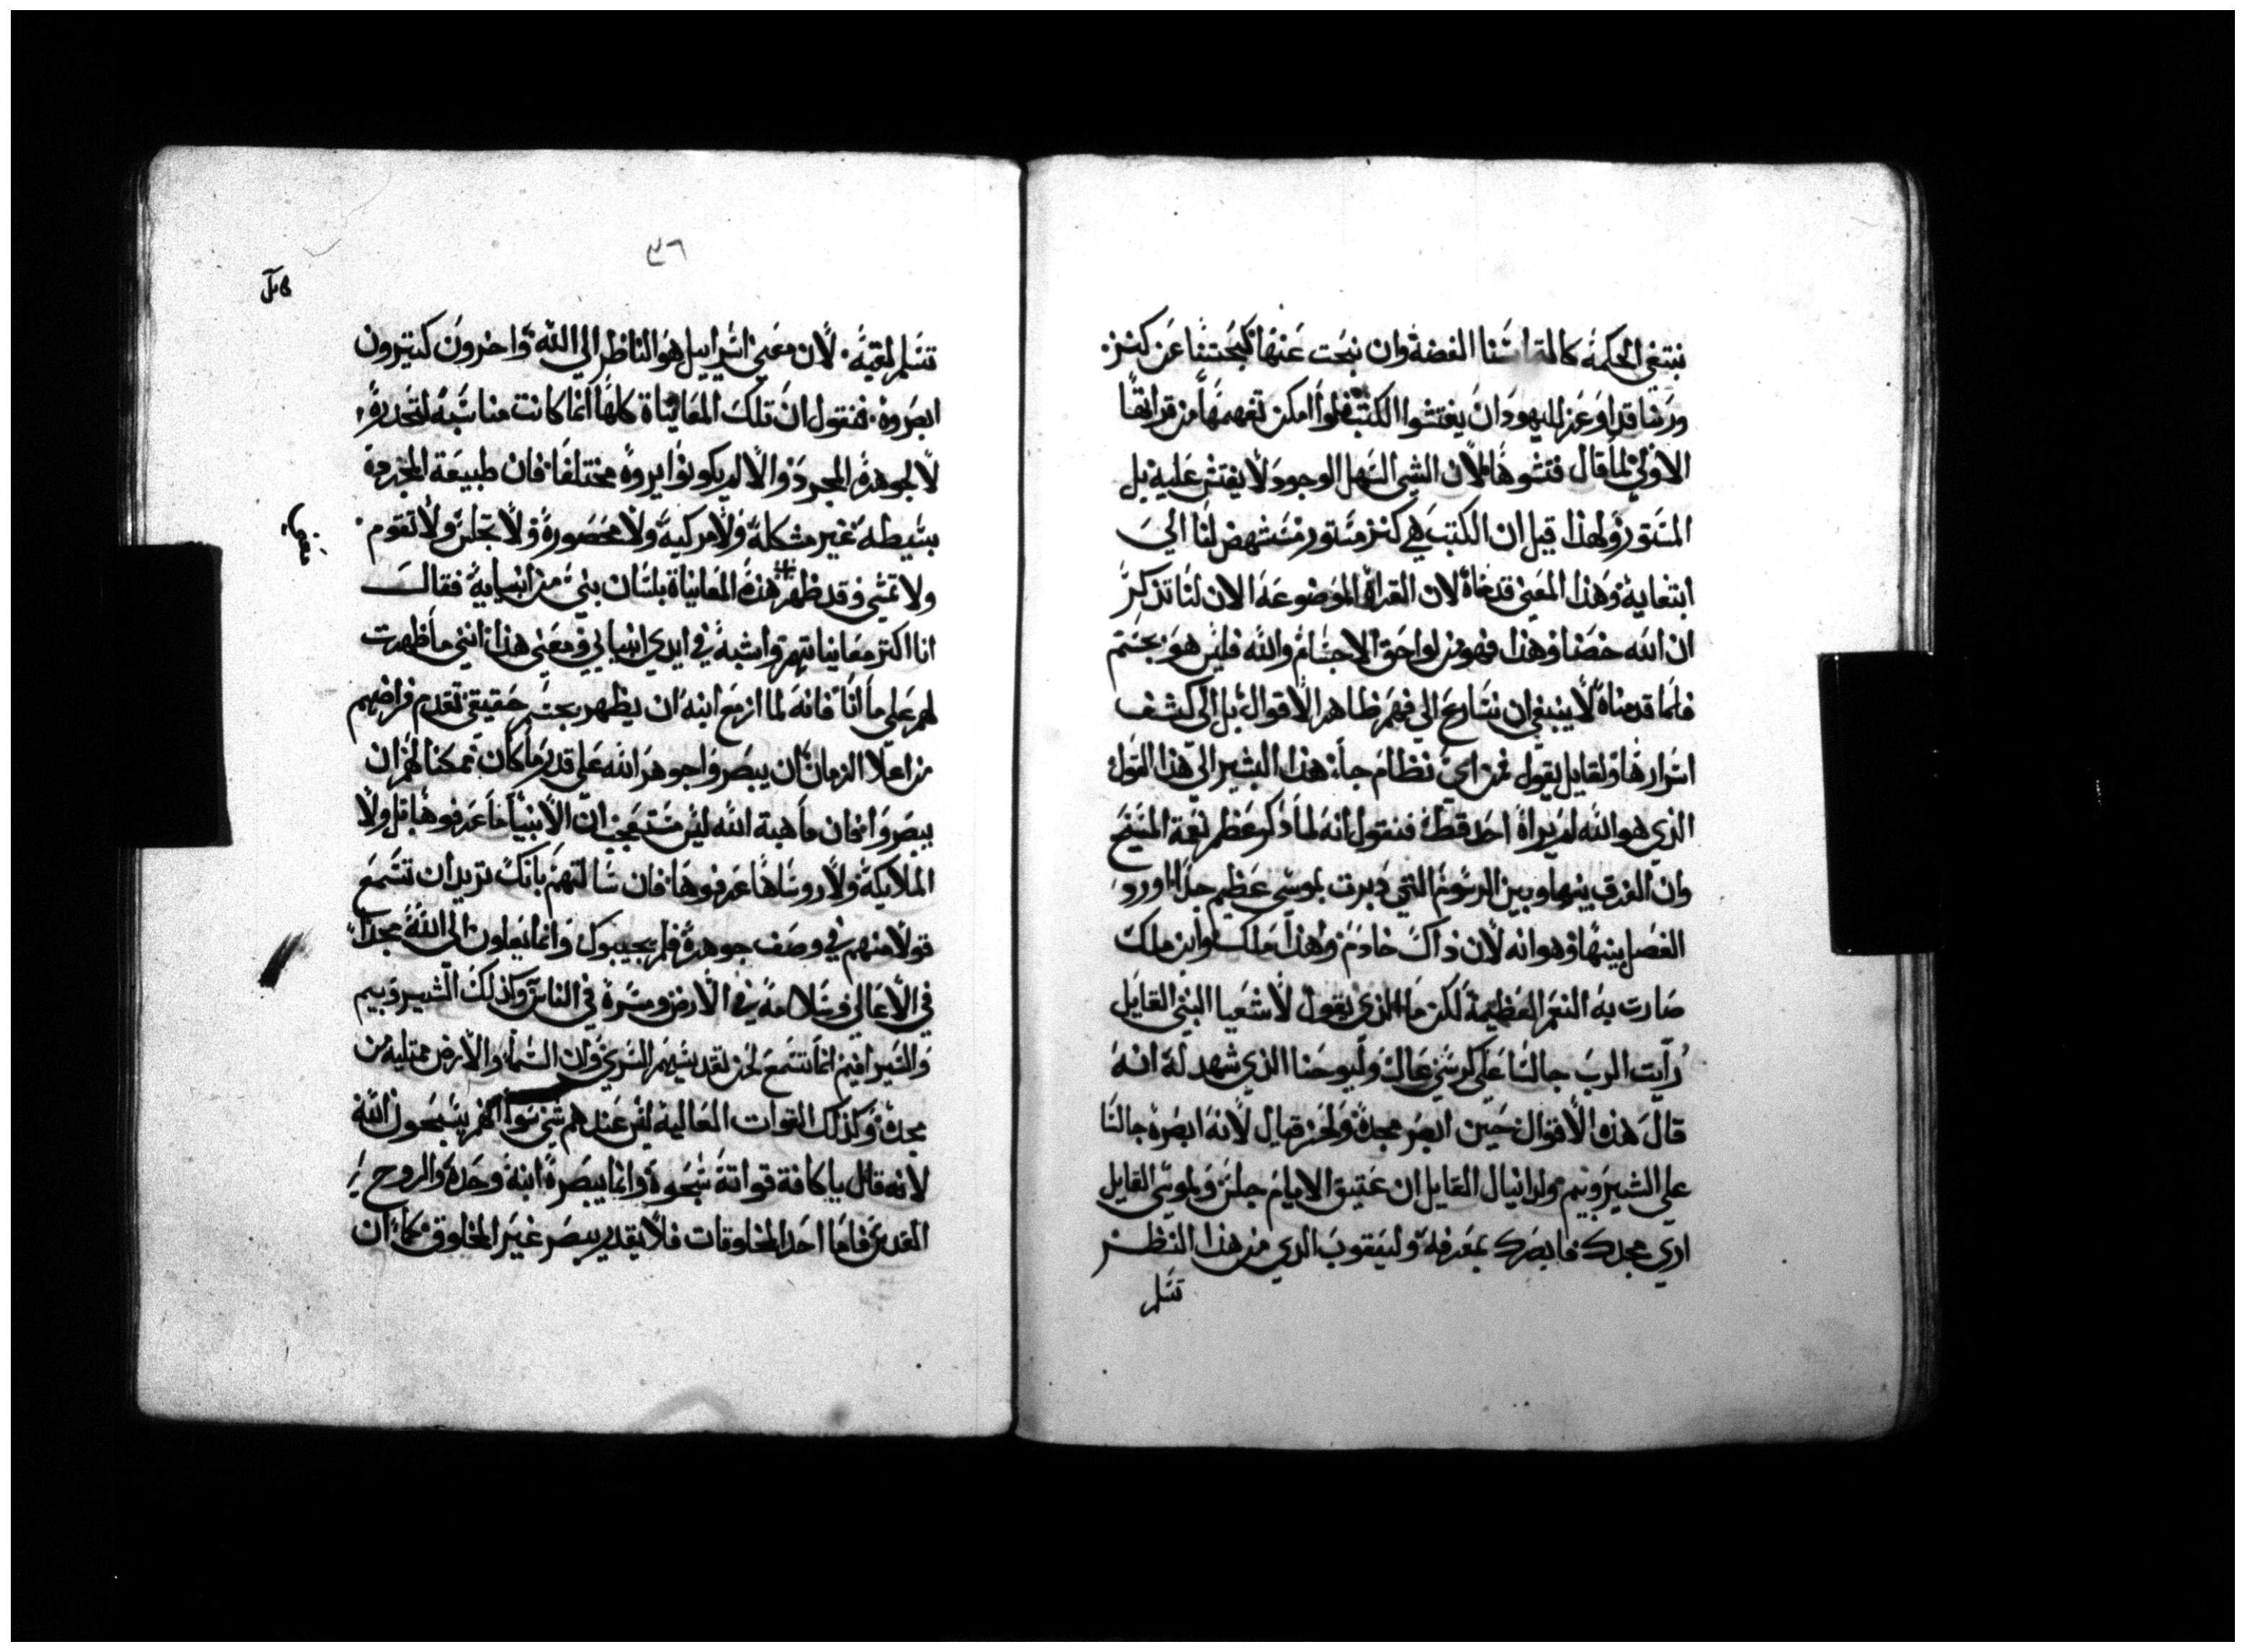 نبتغي الحكمة كالتماسنا الفضة وان نبحت عنها كبحتنا عن كنز.
وربنا قد اوعز لليهود ان يفتشوا الكتب فلوا امكن تفهمها من قراتها
الاولي لما قال فتشوها لان الشي السهل الوجود لا يفتش عليه بل
المستور ولهذا قيل ان الكتب هي كنز مستور مستنهض لنا الي
ابتغايه وهذا المعني قدمناه لان القراه الموضوعة الان لنا تذكر
ان الله حضنا وهذا فهو من لواحق الاجسام والله فليس هو بجسم
فلما قدمناه لا ينبغي ان نسارع الي فهم ظاهر الاقوال بل الي كشف
اسرارها ولقايل يقول فمن اي نظام جاء هذا البشير الي هذا القول
الذي هو الله لم يراه احد قط فنقول انه لما ذكر عظم نعمة المسيح
وان الفرق بينها وبين الرسوم التي دبرت بموسي عظيم جدا اورد
الفصل بينهما وهو انه لان ذاك خادم وهذا ملك وابن ملك
صارت به النعم العظيمة لكن ما الذي يقول لاشعيا النبي القايل
رايت الرب جالسا علي كرسي عال وليوحنا الذي شهد له انه
قال هذه الاقوال حين ابصر مجده ولحزقيال لانه ابصره جالسا
علي الشيروبيم ولدانيال القايل ان عتيق الايام جلس وبموسي القايل
اري مجدك فابصرك بمعرفة وليعقوب الذي من هذا النظر
تسلم
٣٦
قابل
تسلم لقبه لان معني اسراييل هو الناظر الي الله واخرون كتيرون
ابصروه فنقول ان تلك المعاينات كلها انما كانت مناسبة لتحدره
لا لجوهره المجرد والا لم يكونوا يروه مختلفا فان طبيعة المجردة
بسيطة غير مشكلة ولا مركبة ولا محصورة ولا تجلس ولا تقوم
ولا تمشي وقد ظهر هذه المعاينات بلسان بني من انبيايه فقال
انا اكتر معايناتهم واشبه في ايدي انبيايي ومعني هذا انني ما ظهرت
لهم علي ما انا فانه لما ازمع ابنه ان يظهر بجسم حقيقي تقدم فراضهم
من اعلا الزمان ان يبصروا جوهر الله علي قدر ما كان ممكنا لهم ان
يبصروا فان ماهية الله ليس مستعجب ان الانبيا ما عرفوها بل ولا
الملايكة ولا روساها عرفوها فان سالتهم بانك تريد ان تسمع
قولا منهم في وصف جوهره فلم يجيبوك وانما يقولون الي الله مجدا
في الاعالي وسلامة في الارض ومسرة في الناس وكذلك الشيروبيم
والسيرافيم انما تسمع لحن تقديسهم السري وان السماء والارض ممتلية من
مجده وكذلك القوات العالية ليس عندهم شي سوا انهم يسبحون الله
لانه قال يا كافة قواته سبحوه وانما يبصره ابنه وحده والروح
القدس فاما احد المخلوقات فلا يقدر يبصر غير المخلوق كما ان